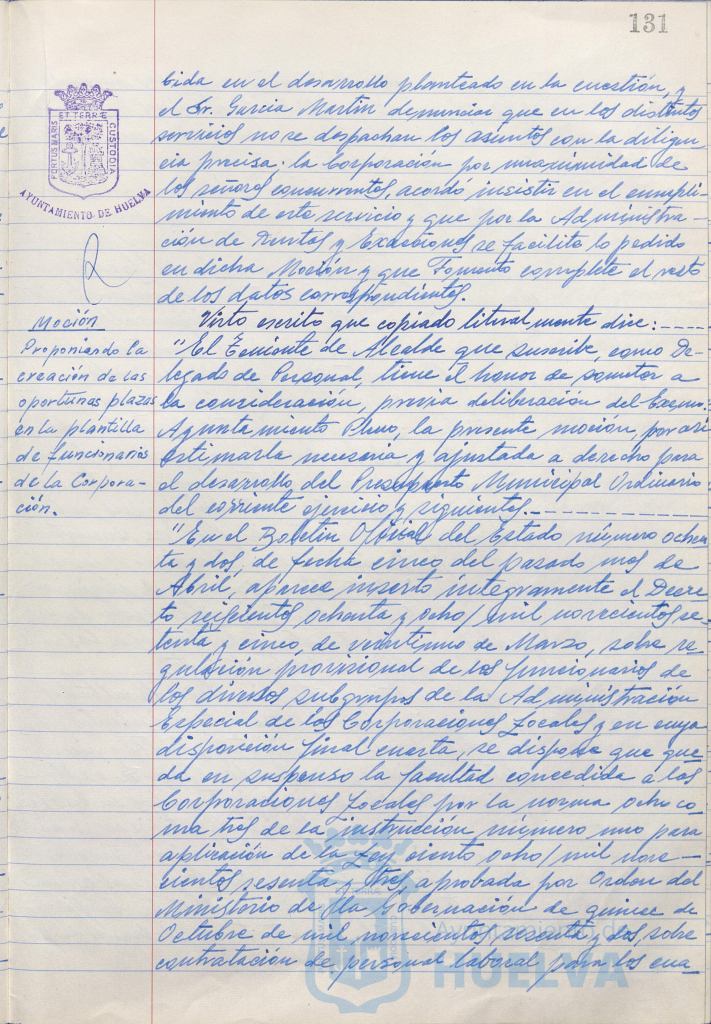 131
PORTUS MARIS
ET TERRÆ
CUSTODIA
AYUNTAMIENTO DE HUELVA
bida en el desarrollo planteado en la cuestión, y
el Sr. García Martín denunciar que en los distintos
servicios no se despachan los asuntos con la diligen-
cia precisa; la Corporación por unanimidad de
los señores concurrentes, acordó insistir en el cumpli-
miento de este servicio y que por la Administra-
ción de Rentas y Exacciones se facilite lo pedido
en dicha Moción y que Fomento complete el resto
de los datos correspondientes.
Moción
Proponiendo la
creación de las
oportunas plazas
en la plantilla
de funcionarios
de la Corpora-
ción.
Visto escrito que copiado literalmente dice:----
"El Teniente de Alcalde que suscribe, como De-
legado de Personal, tiene el honor de someter a
la consideración, previa deliberación del Excmo.
Ayuntamiento Pleno, la presente moción, por así
estimarla necesaria y ajustada a derecho para
el desarrollo del Presupuesto Municipal Ordinario
del corriente ejercicio y siguientes.----
"En el Boletín Oficial del Estado número ochen-
ta y dos, de fecha cinco del pasado mes de
Abril, aparece inserto íntegramente el Decre-
to seiscientos ochenta y ocho/mil novecientos se-
tenta y cinco, de veintiuno de Marzo, sobre re-
gulación provisional de los funcionarios de
los diversos subgrupos de la Administración
Especial de las Corporaciones Locales y en cuya
disposición final cuarta, se dispone que que-
da en suspenso la facultad concedida a las
Corporaciones Locales por la norma ocho co-
ma tres de la instrucción número uno para
aplicación de la Ley ciento ocho/mil nove-
cientos sesenta y tres, aprobada por Orden del
Ministerio de la Gobernación de quince de
Octubre de mil novecientos sesenta y dos, sobre
contratación de personal laboral para los cua-
Ayuntamiento de
HUELVA